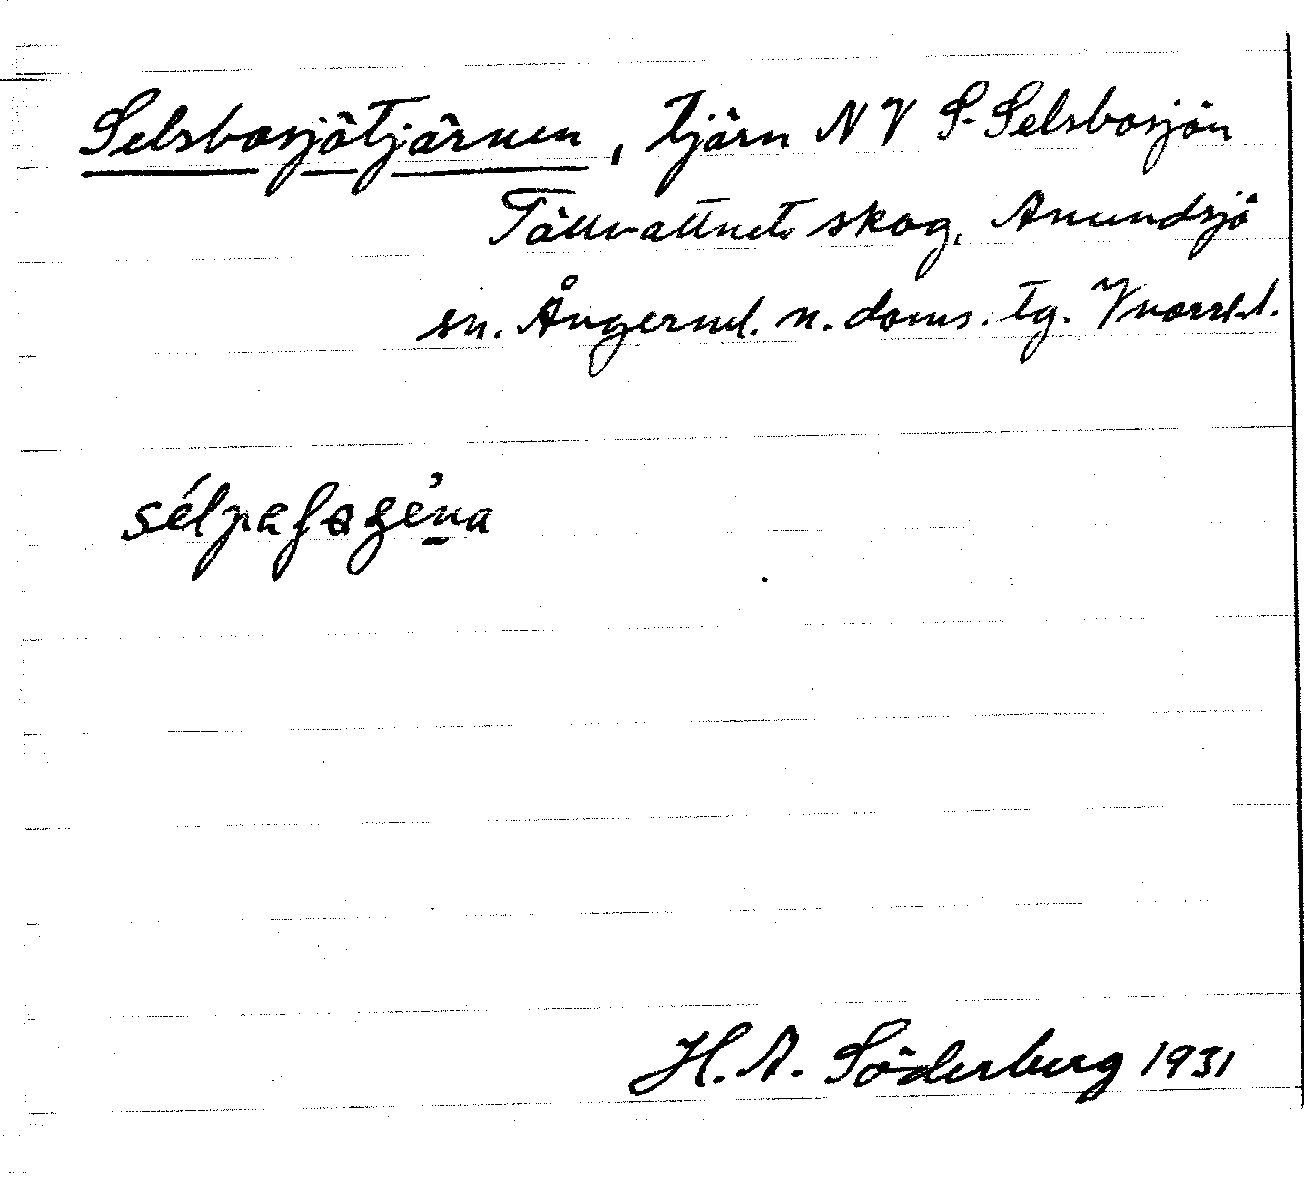 Selsbosjötjärnen, tjärn NV S. Selsbosjön
Tällvattnets skog, Anundsjö
sn. Ångerml. n. doms. tg. Vnorrl. l.
H. A. Söderberg 1931